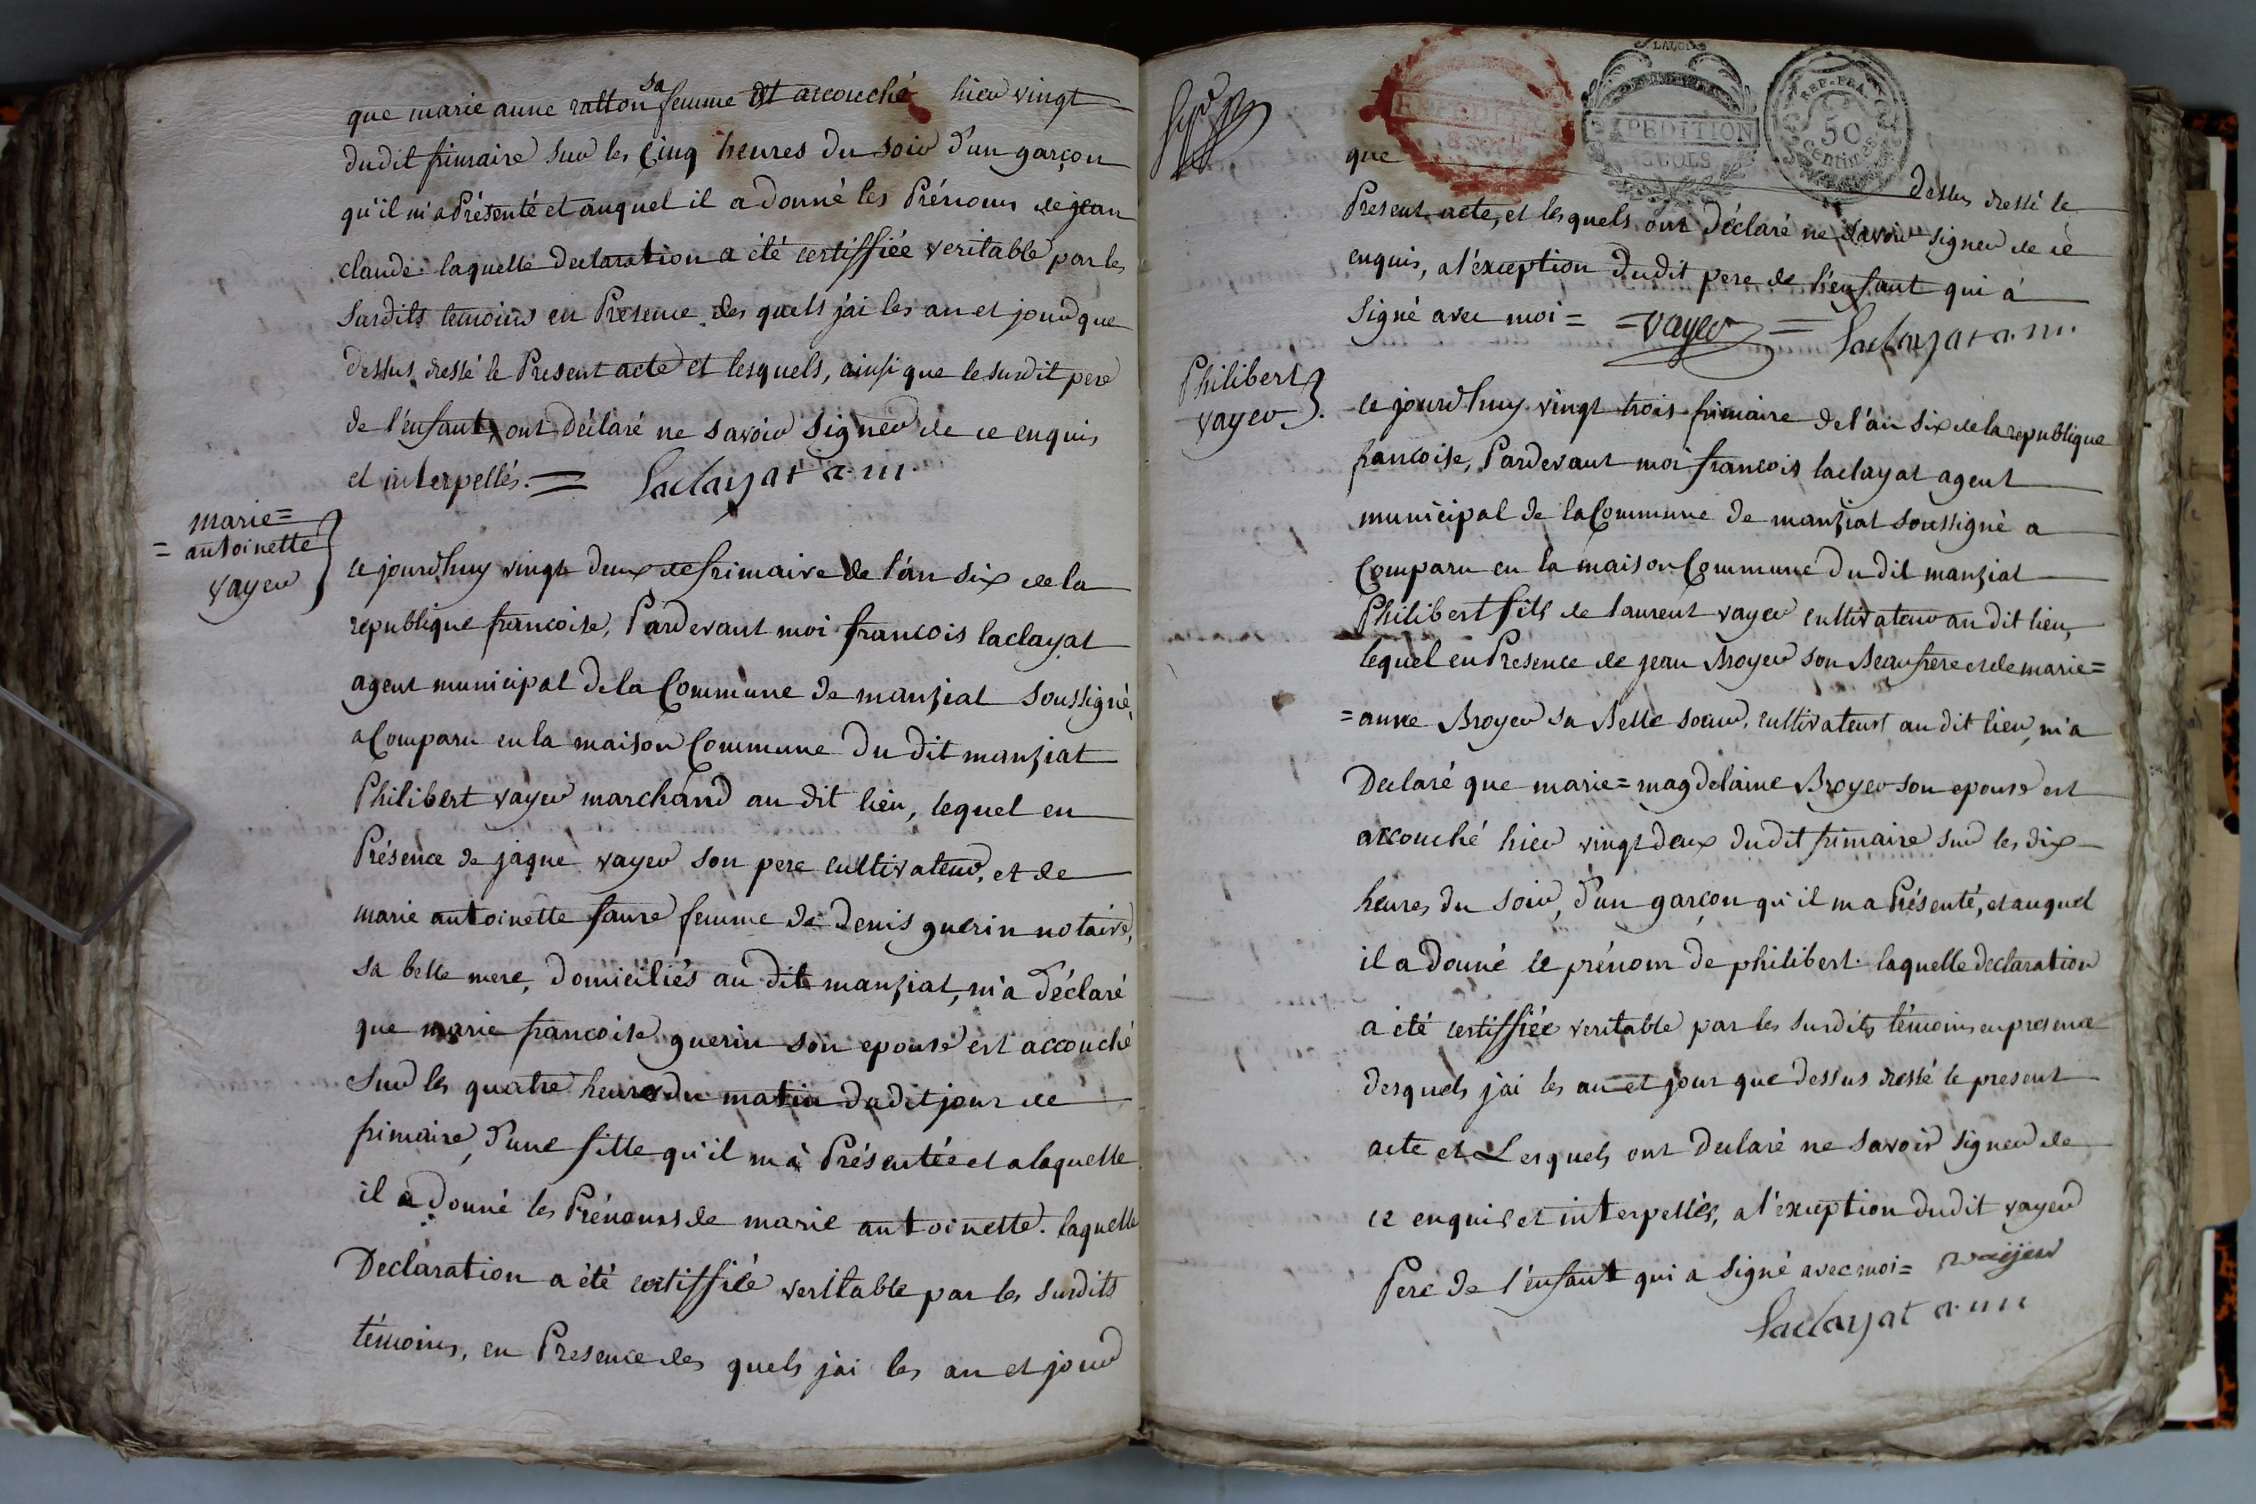 que marie anne ratton sa femme est accouché hier vingt
dudit frimaire sur les Cinq heures du soir d'un garçon
qu'il m'a Présenté et auquel il a donné les Prénoms de jean
claude laquelle declaration a été certiffiée veritable par les
susdits temoins en Presence des quels j'ai les an et jour que
dessus dressé le Present acte et lesquels, ainsi que le susdit pere
de l'enfant, ont déclaré ne savoir signer de ce enquis,
et interpellés. = Laclayat a. m.
marie=
=antoinette
vayer
ce jourd'huy vingt deux de frimaire de l'an six de la
republique francoise, Pardevant moi francois laclayat
agent municipal de la Commune de manziat soussigné,
a Comparu en la maison Commune du dit manziat
Philibert vayer marchand au dit lieu, lequel en
Présence de jaque vayer son pere cultivateur, et de
marie antoinette faure femme de denis guerin notaire,
sa belle mere, domiciliés au dit manziat, m'a déclaré
que marie francoise guerin son epouse est accouché
sur les quatre heures du matin dudit jour de
frimaire, d'une fille qu'il m'a Présentée et a laquelle
il a donné les Prénoms de marie antoinette. laquelle
Declaration a été certiffiée veritable par les susdits
témoins, en Presence des quels j'ai les an et jour
EXPEDITION
REP. FRA.
50
Centimes
que dessus dressé le
Present acte, et lesquels ont déclaré ne savoir signer de ce
enquis, a l'exception dudit pere de l'enfant qui a
signé avec moi = = vayer = Laclayat a. m.
Philibert
vayer
ce jourd'huy vingt trois frimaire de l'an six de la republique
francoise, Pardevant moi francois laclayat agent
municipal de la Commune de manziat soussigné a
Comparu en la maison Commune du dit manziat
Philibert fils de laurent vayer cultivateur au dit lieu,
lequel en Presence de jean Broyer son Beaufrere et de marie=
=anne Broyer sa Belle soeur, cultivateurs au dit lieu, m'a
Declaré que marie=magdelaine Broyer son epouse est
accouché hier vingt deux dudit frimaire sur les dix
heures du soir, d'un garçon qu'il m a Présenté, et auquel
il a donné le prénom de philibert. laquelle declaration
a été certiffiée veritable par les susdits témoins en presence
desquels j'ai les an et jour que dessus dressé le present
acte et Lesquels ont declaré ne savoir signer de
ce enquis et interpellés, a l'exception dudit vayer
Pere de l'enfant qui a signé avec moi = vayer
Laclayat a. m.